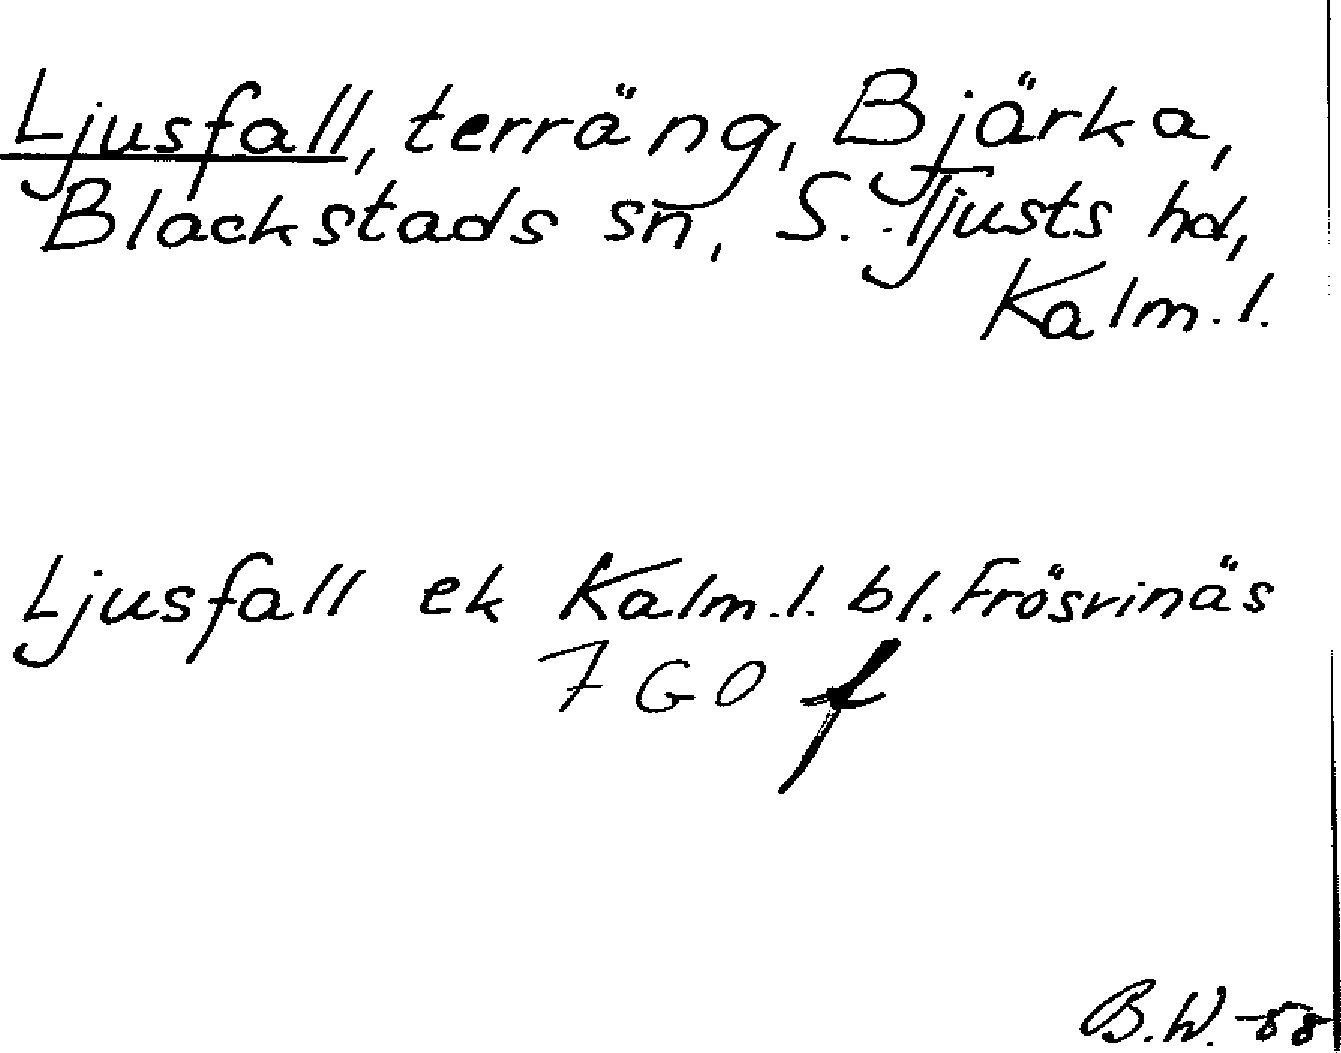 Ljusfall, terräng, Bjärka,
Blackstads sn, S. Tjusts hd,
Kalm. l.
Ljusfall ek Kalm. l. bl. Frösvinäs
7 G O f
B.W. -58